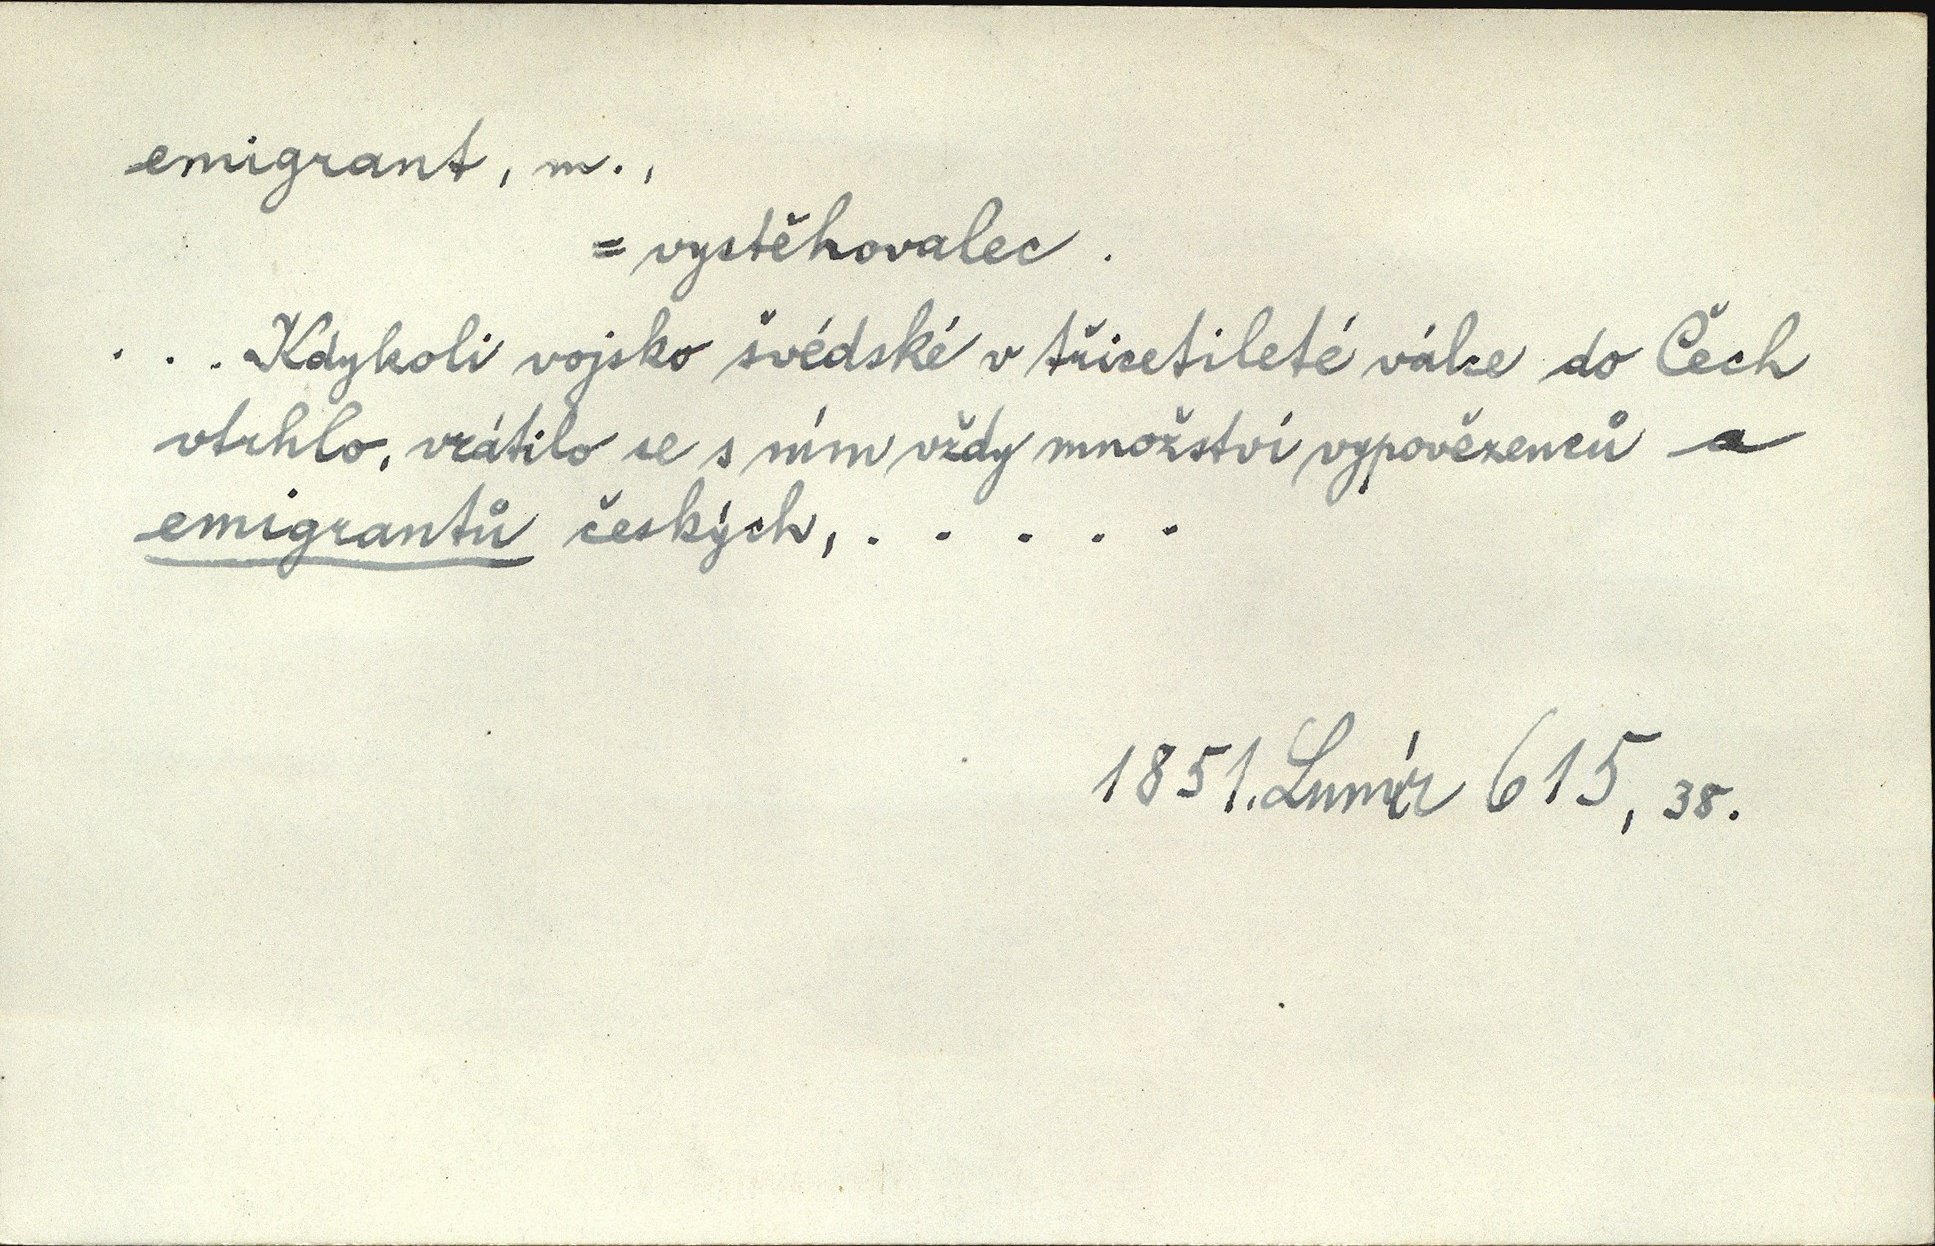 emigrant, m.,
= vystěhovalec.
. . . Kdykoli vojsko švédské v třicetileté válce do Čech
vtrhlo, vrátilo se s ním vždy množství vypovězenců a
emigrantů českých, . . . . .
1851. Lumír 615, 38.